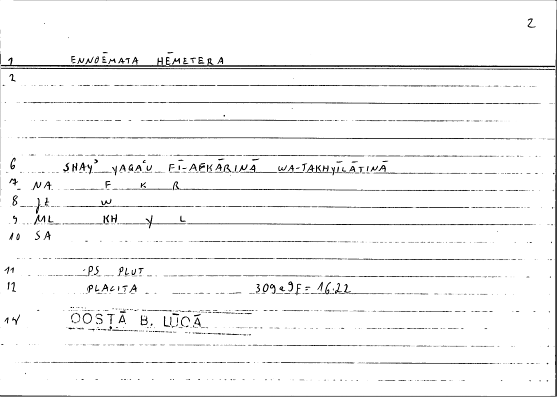 2
1 ENNOĒMATA HĒMETERA
2
6 SHAYʾ YAQAʿU FĪ-AFKĀRINĀ WA-TAKHYĪLĀTINĀ
7 NA F K R
8 ft W
9 ML KH Y L
10 SA
11 PS PLUT
12 PLACITA 309a9F = 16.22
14 QOSṬĀ B. LŪQĀ